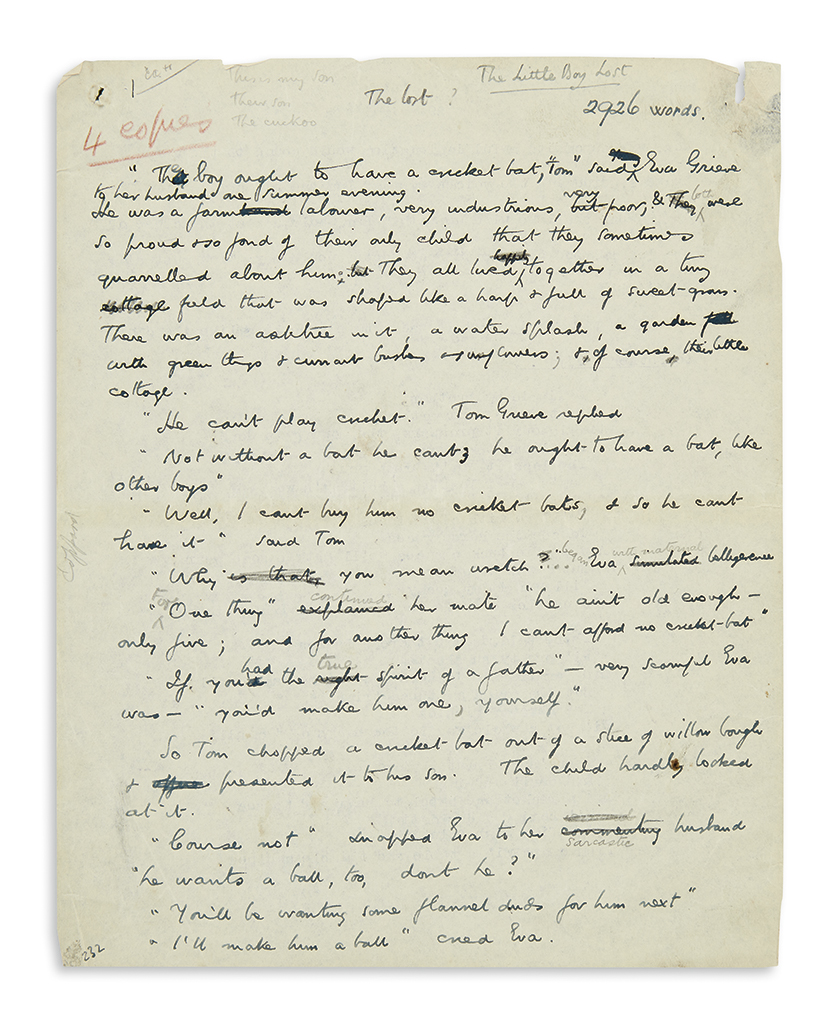 This is my son
The Little Boy Lost
their son
The lost ?
The cuckoo
2926 words.
4 copies
" The boy ought to have a cricket bat, Tom" said Eva Grieve
to her husband one summer evening.
He was a farm labourer, very industrious, very but poor, & They both were
so proud & so fond of their only child that they sometimes
quarrelled about him; but They all lived happily together in a tiny
cottage field that was shaped like a harp & full of sweet grass.
There was an ashtree in it, a water splash, a garden full
with green things & currant bushes & flowers; &, of course, their little
cottage.
"He can't play cricket." Tom Grieve replied
"Not without a bat he cant; he ought to have a bat, like
other boys"
"Well, I cant buy him no cricket bats, & so he cant
have it" said Tom
"Why is that, you mean wretch?"... began Eva with maternal simulated belligerence
"For One thing" explained continued her mate "he ain't old enough –
only five; and for another thing I cant afford no cricket-bat"
"If you'd had the right true spirit of a father" – very scornful Eva
was – "you'd make him one, yourself."
So Tom chopped a cricket-bat out of a slice of willow bough
& presented it to his son. The child hardly looked
at it.
"Course not" snapped Eva to her commenting sarcastic husband
"he wants a ball, too, dont he?"
"You'll be wanting some flannel duds for him next"
"I'll make him a ball" cried Eva.
232